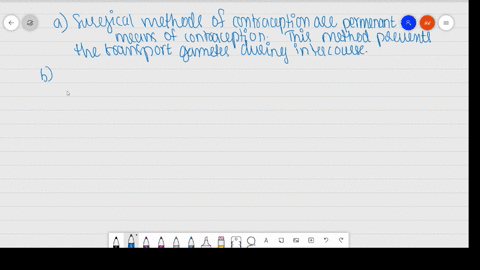 a) Surgical methods of contraception are permenant
means of contraception. This method prevents
the transport gametes during intercourse.
b)